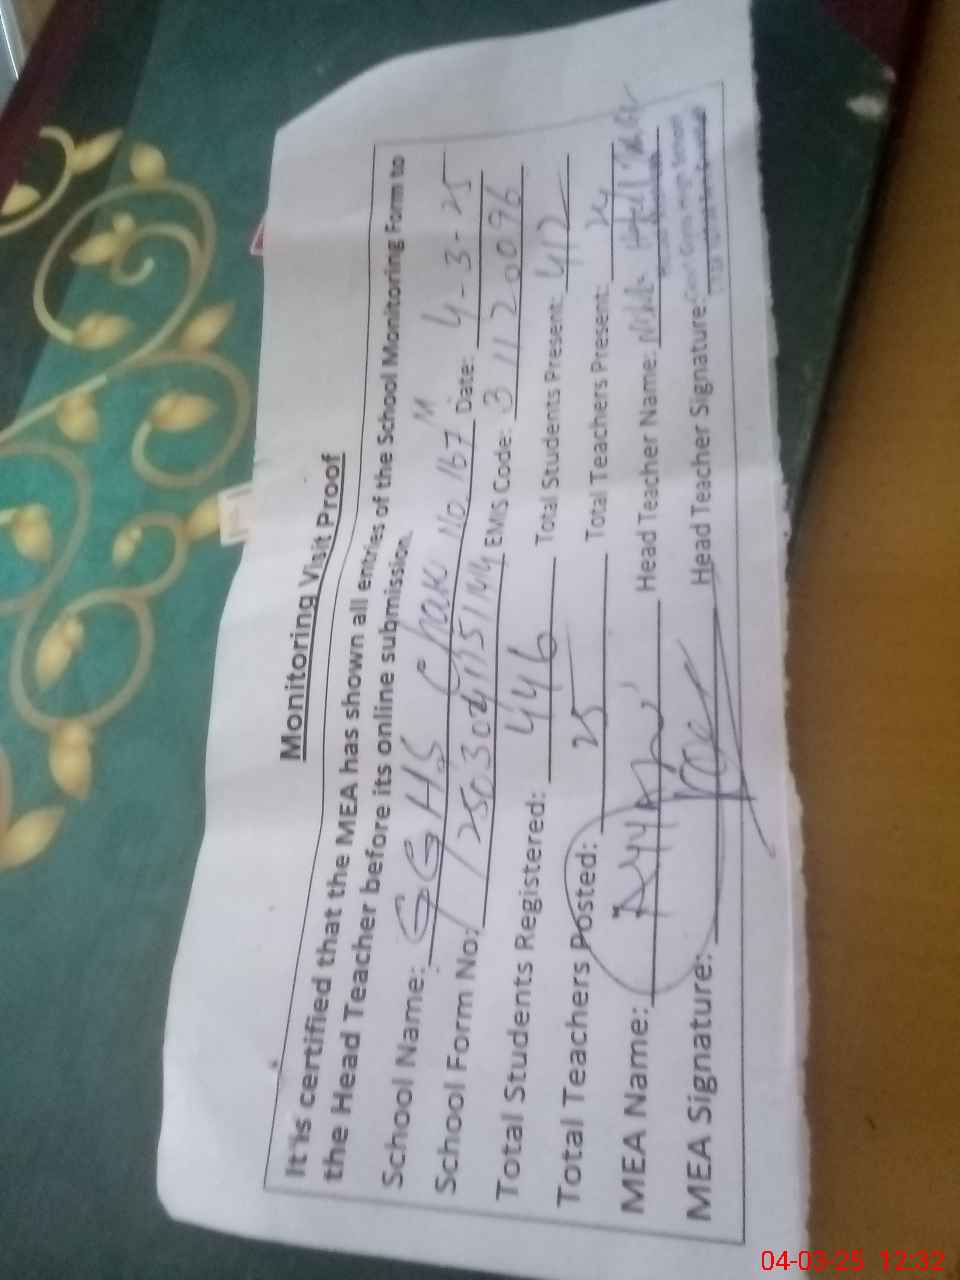 Monitoring Visit Proof
It is certified that the MEA has shown all entries of the School Monitoring Form to
the Head Teacher before its online submission.
School Name: GGHS Chak No. 167 M Date: 4-3-25
School Form No: EMIS Code: 31120096
Total Students Registered: 446 Total Students Present: 412
Total Teachers Posted: 25 Total Teachers Present: 24
MEA Name: Head Teacher Name:
MEA Signature: Head Teacher Signature:
Govt Girls High School
04-03-25 12:32